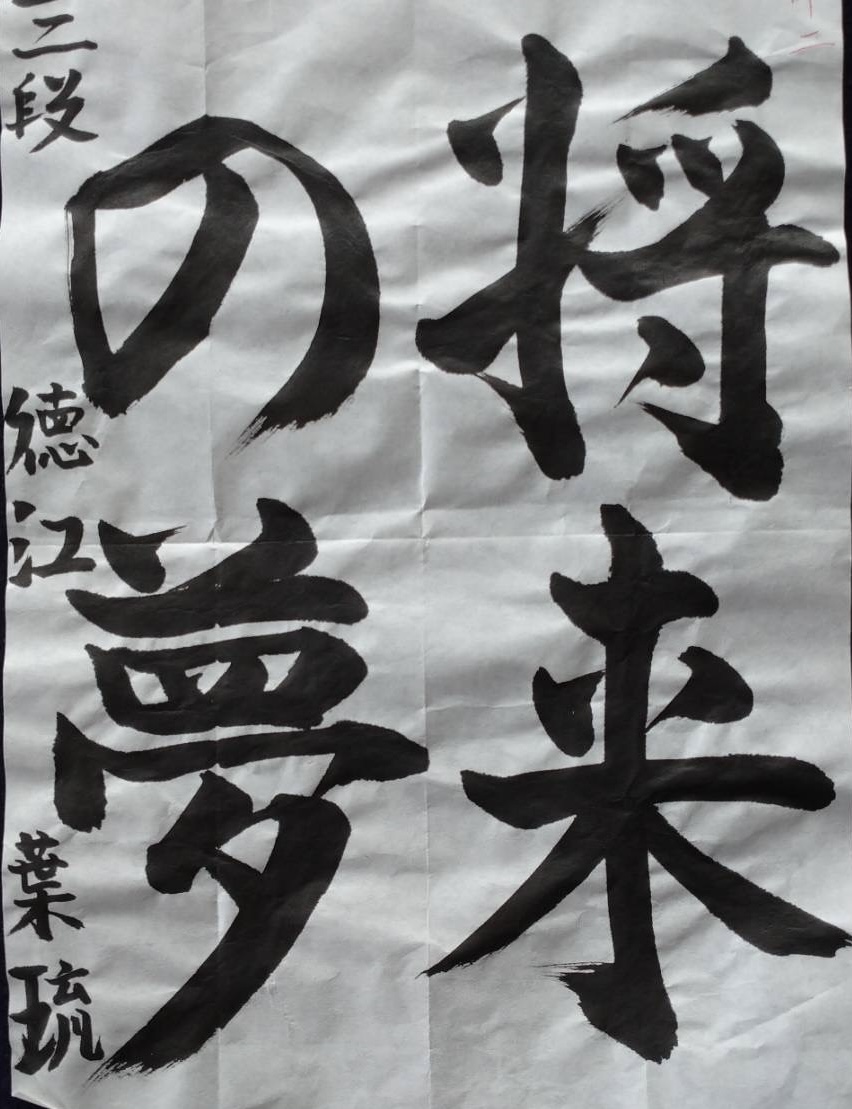 将来
の夢
三段 徳江 葉琉